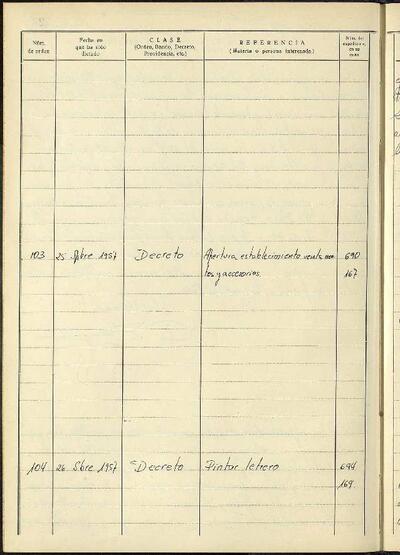 Núm. de orden
Fecha en que ha sido dictado
CLASE
(Orden, Bando, Decreto, Providencia, etc.)
REFERENCIA
(Materia o persona interesada)
Núm. del expediente, en su caso
103 25 Sbre 1957 Decreto Apertura establecimiento venta mo 690
tos y accesorios. 167
104 26 Sbre 1957 Decreto Pintar letrero 694
169